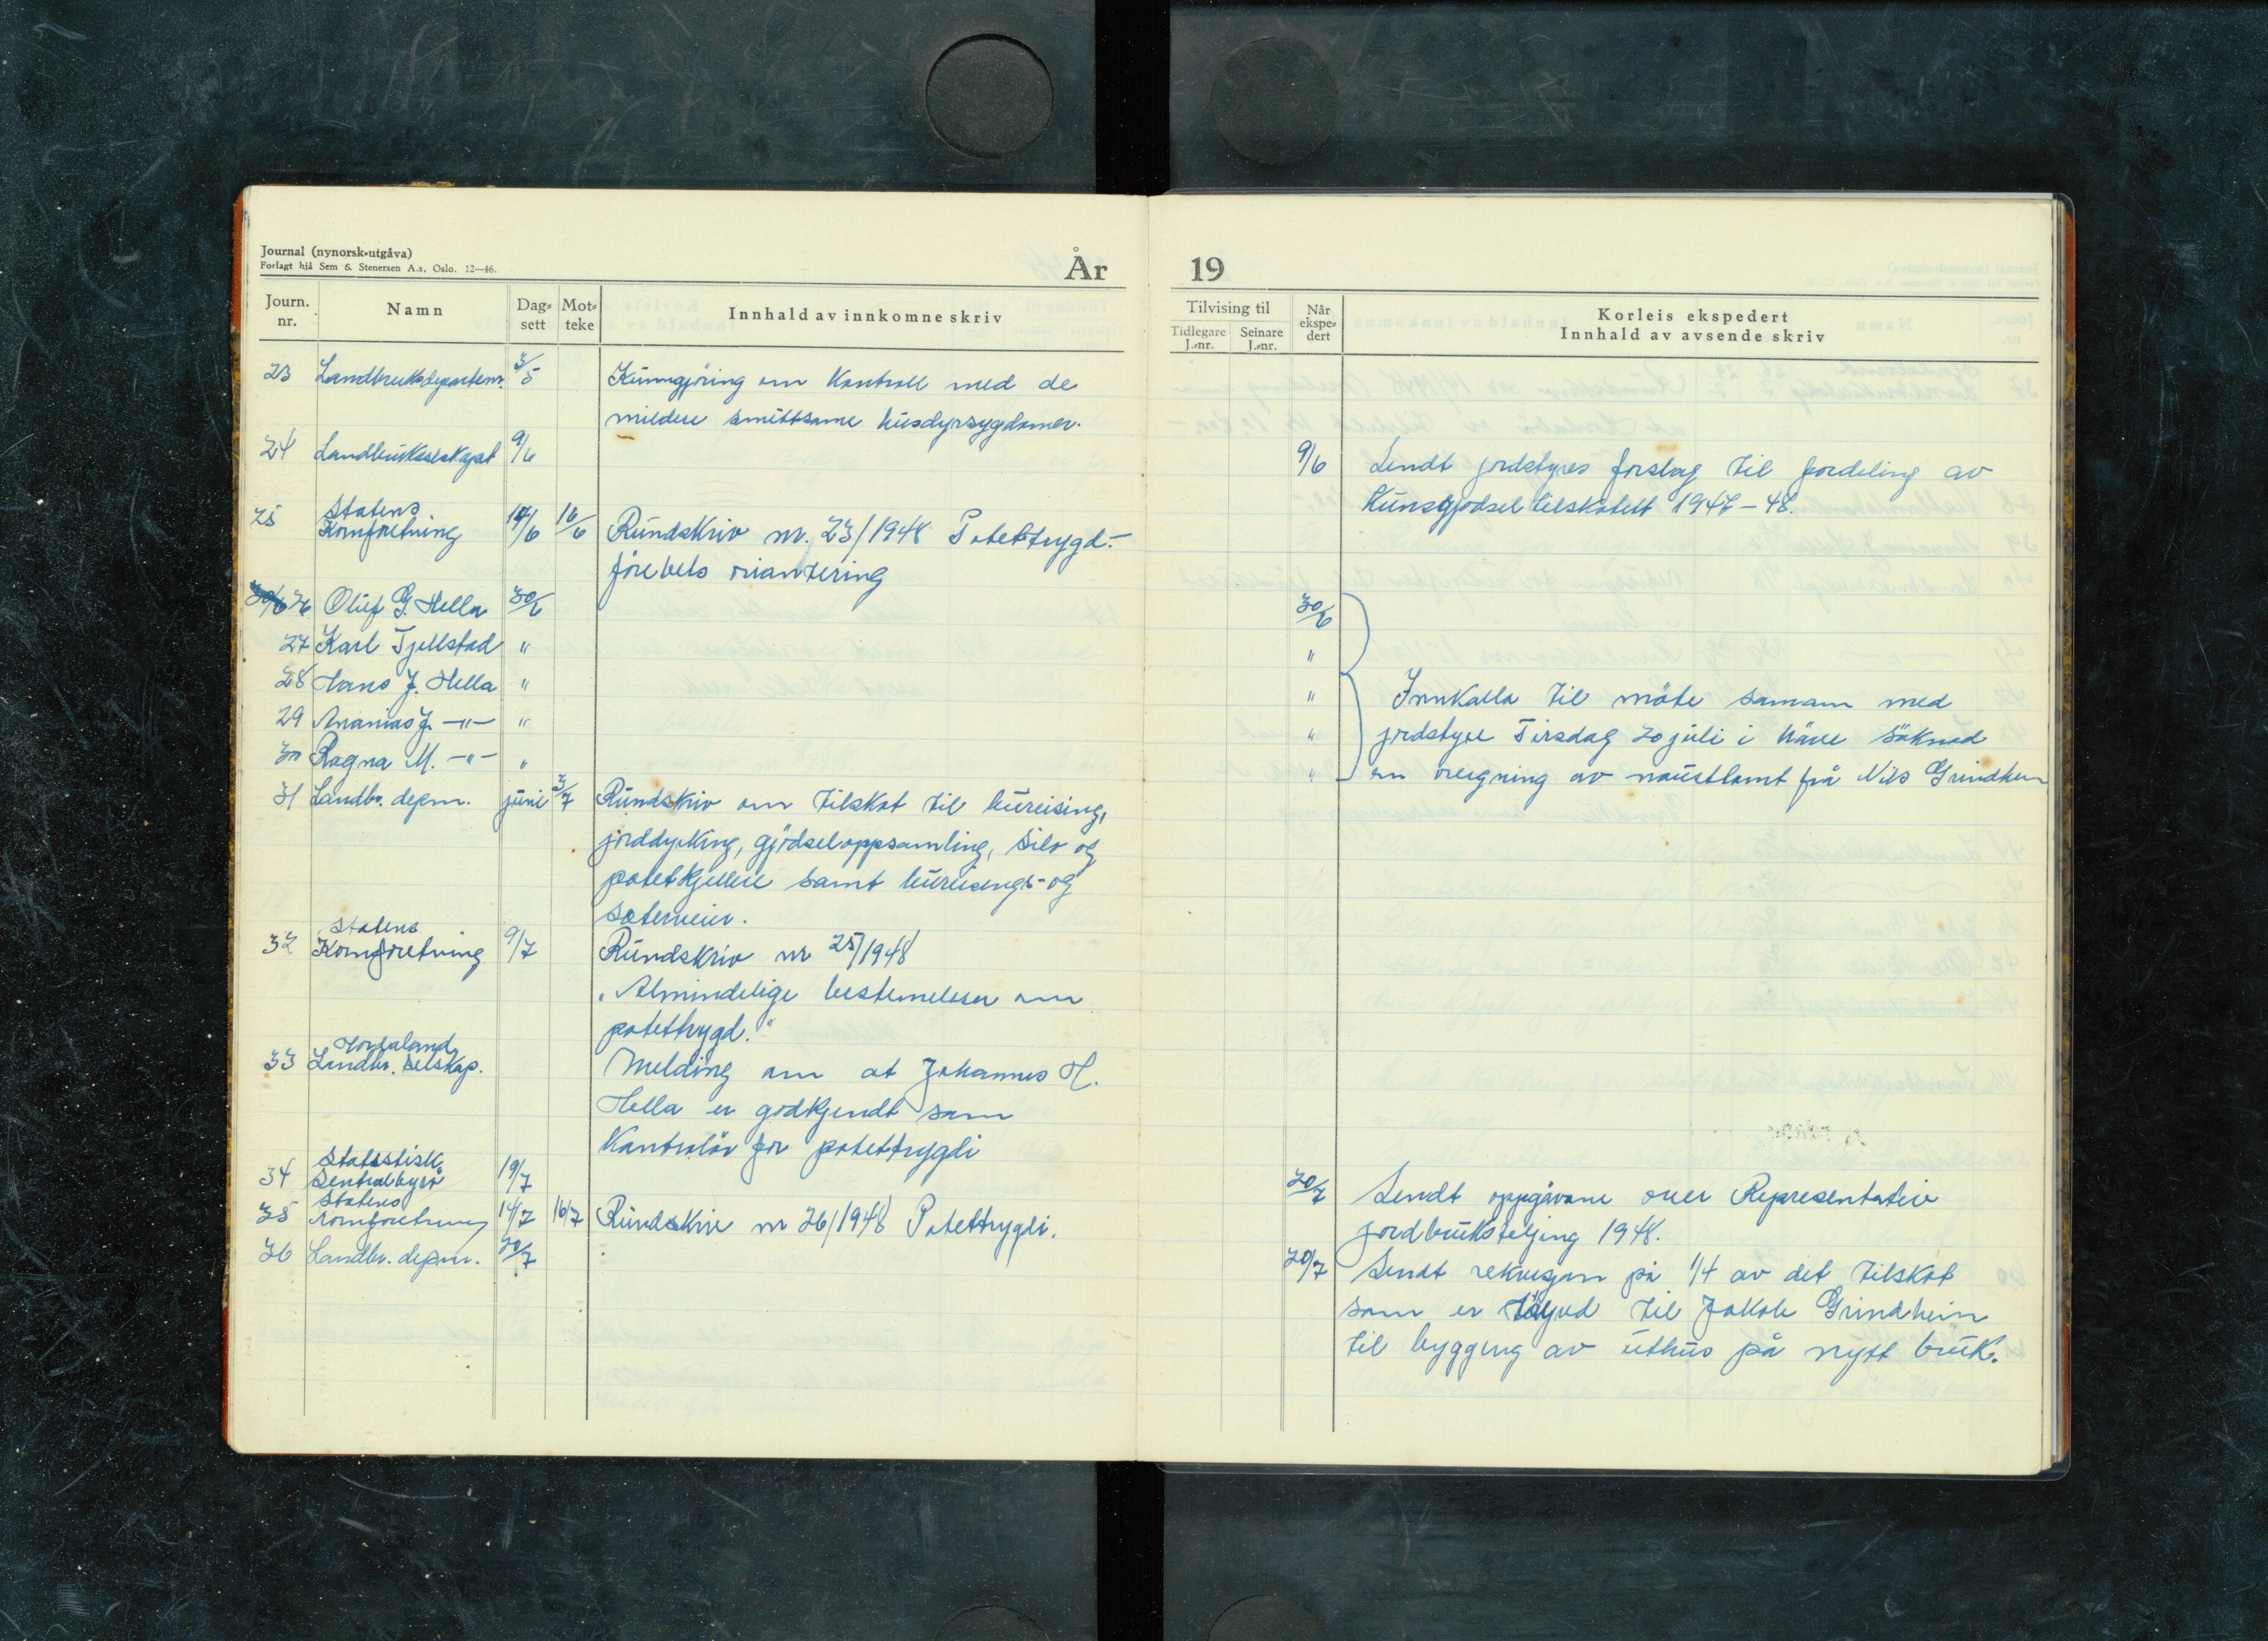 Journal (nynorsk-utgåva)
Forlagt hjå Sem & Stenersen A.s. Oslo. 12—46.
År
Journ. nr.
Namn
Dag-sett
Mot-teke
Innhald av innkomne skriv
23 Landbruksdepartem. 3/5 Kunngjöring om kontroll med de
mildere smittsame husdyrsygdomer.
24 Landbruksselskapet 9/6
Statens
25 Kornforretning 14/6 16/6 Rundskriv nr. 23/1948 Potettrygd-
förebels oriantering
26 Oluf G. Hella 30/6
27 Karl Tjellstad "
28 Hans J. Hella "
29 Ananias J. -"- "
30 Ragna M. -"- "
31 Landbr. depm. juni 3/7 Rundskriv om tilskot til bureising,
jorddyrking, gjödseloppsamling, silo og
potetkjellere samt bureisings- og
sæterveier.
Statens
32 Kornforretning 9/7 Rundskriv nr 25/1948
"Almindelige bestemelser om
potettrygd."
Hordaland
33 Landbr. selskap. Melding om at Johannes H.
Hella er godkjendt som
Kontrolör for potettrygdi
Statistisk
34 Sentralbyrå 19/7
Statens
35 Kornforretning 14/7 16/7 Rundskriv nr 26/1948 Potettrygdi.
36 Landbr. depm. 20/7
19
Tilvising til
Tidlegare J.-nr.
Seinare J.-nr.
Når ekspe-dert
Korleis ekspedert
Innhald av avsende skriv
9/6 Sendt jordstyres forslag til fordeling av
Kunstgjodsel tilskotett 1947-48.
30/6
"
" Innkalla til möte saman med
" jordstyre Tirsdag 20 juli i höve söknad
" om overgning av nausttomt frå Nils Grindheim
20/7 Sendt oppgåvane over Representativ
jordbruksteljing 1948.
20/7 Sendt rekvisjon på 1/4 av det tilskot
som er til Jakob Grindheim
til bygging av uthus på nytt bruk.